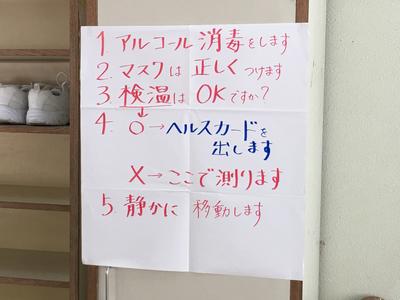 1. アルコール消毒をします
2. マスクは正しくつけます
3. 検温はOKですか?
↓
4. ○→ヘルスカードを
出します
X→ここで測ります
5. 静かに移動します